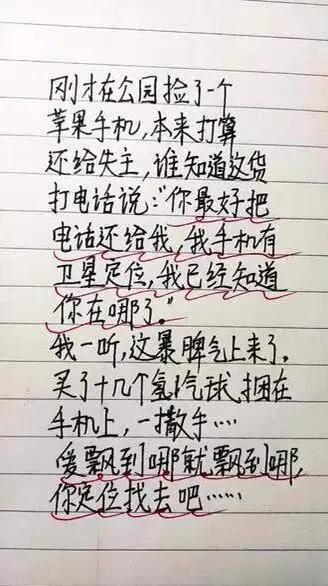 刚才在公园捡了一个
苹果手机,本来打算
还给失主,谁知道这货
打电话说:"你最好把
电话还给我,我手机有
卫星定位,我已经知道
你在哪了。"
我一听,这暴脾气上来了。
买了十几个氢气球捆在
手机上,一撒手····
爱飘到哪就飘到哪,
你定位找去吧······